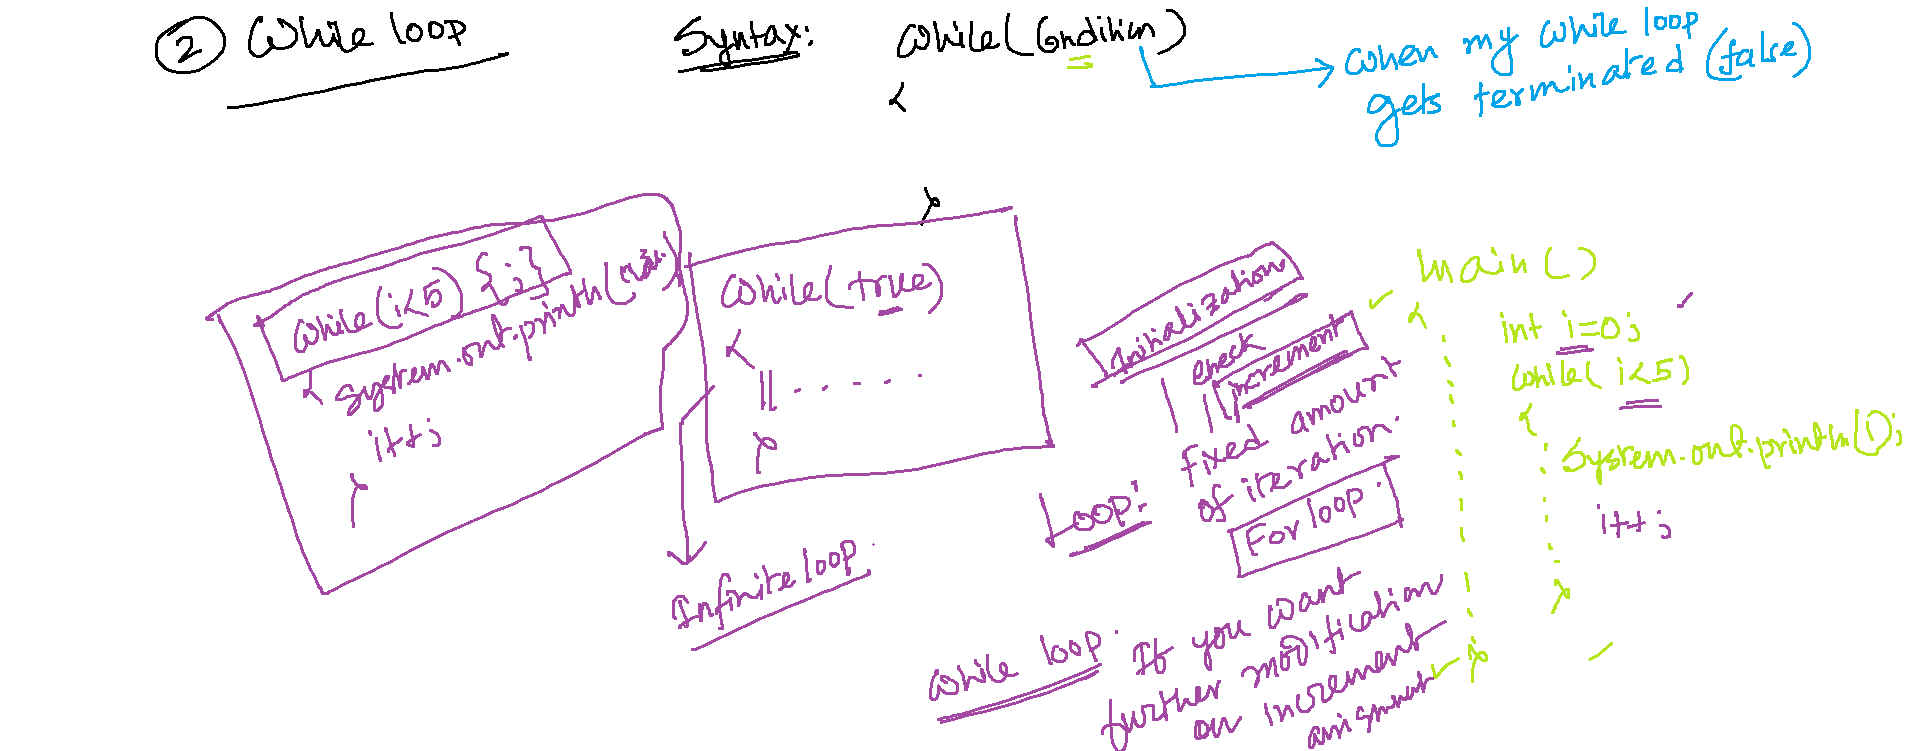 ② While loop
Syntax: while(Condition)
{
}
when my while loop
gets terminated (false)
while(i<5) {;}
{ System.out.println(
i++;
}
while(true)
{
|| . . . . . .
}
Infinite loop.
Initialization
check
increment
Loop: fixed amount
of iteration.
For loop.
while loop. If you want
further modification
on increment
main()
{
int i=0;
while(i<5)
{
System.out.println(i);
i++;
}
}